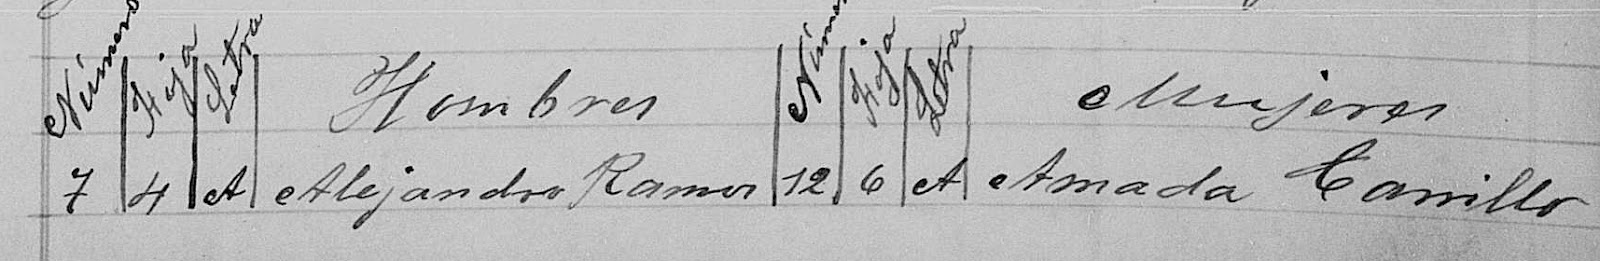 Número Foja Letra Hombres Número Foja Letra Mujeres
7 4 A Alejandro Ramos 12 6 A Amada Carrillo